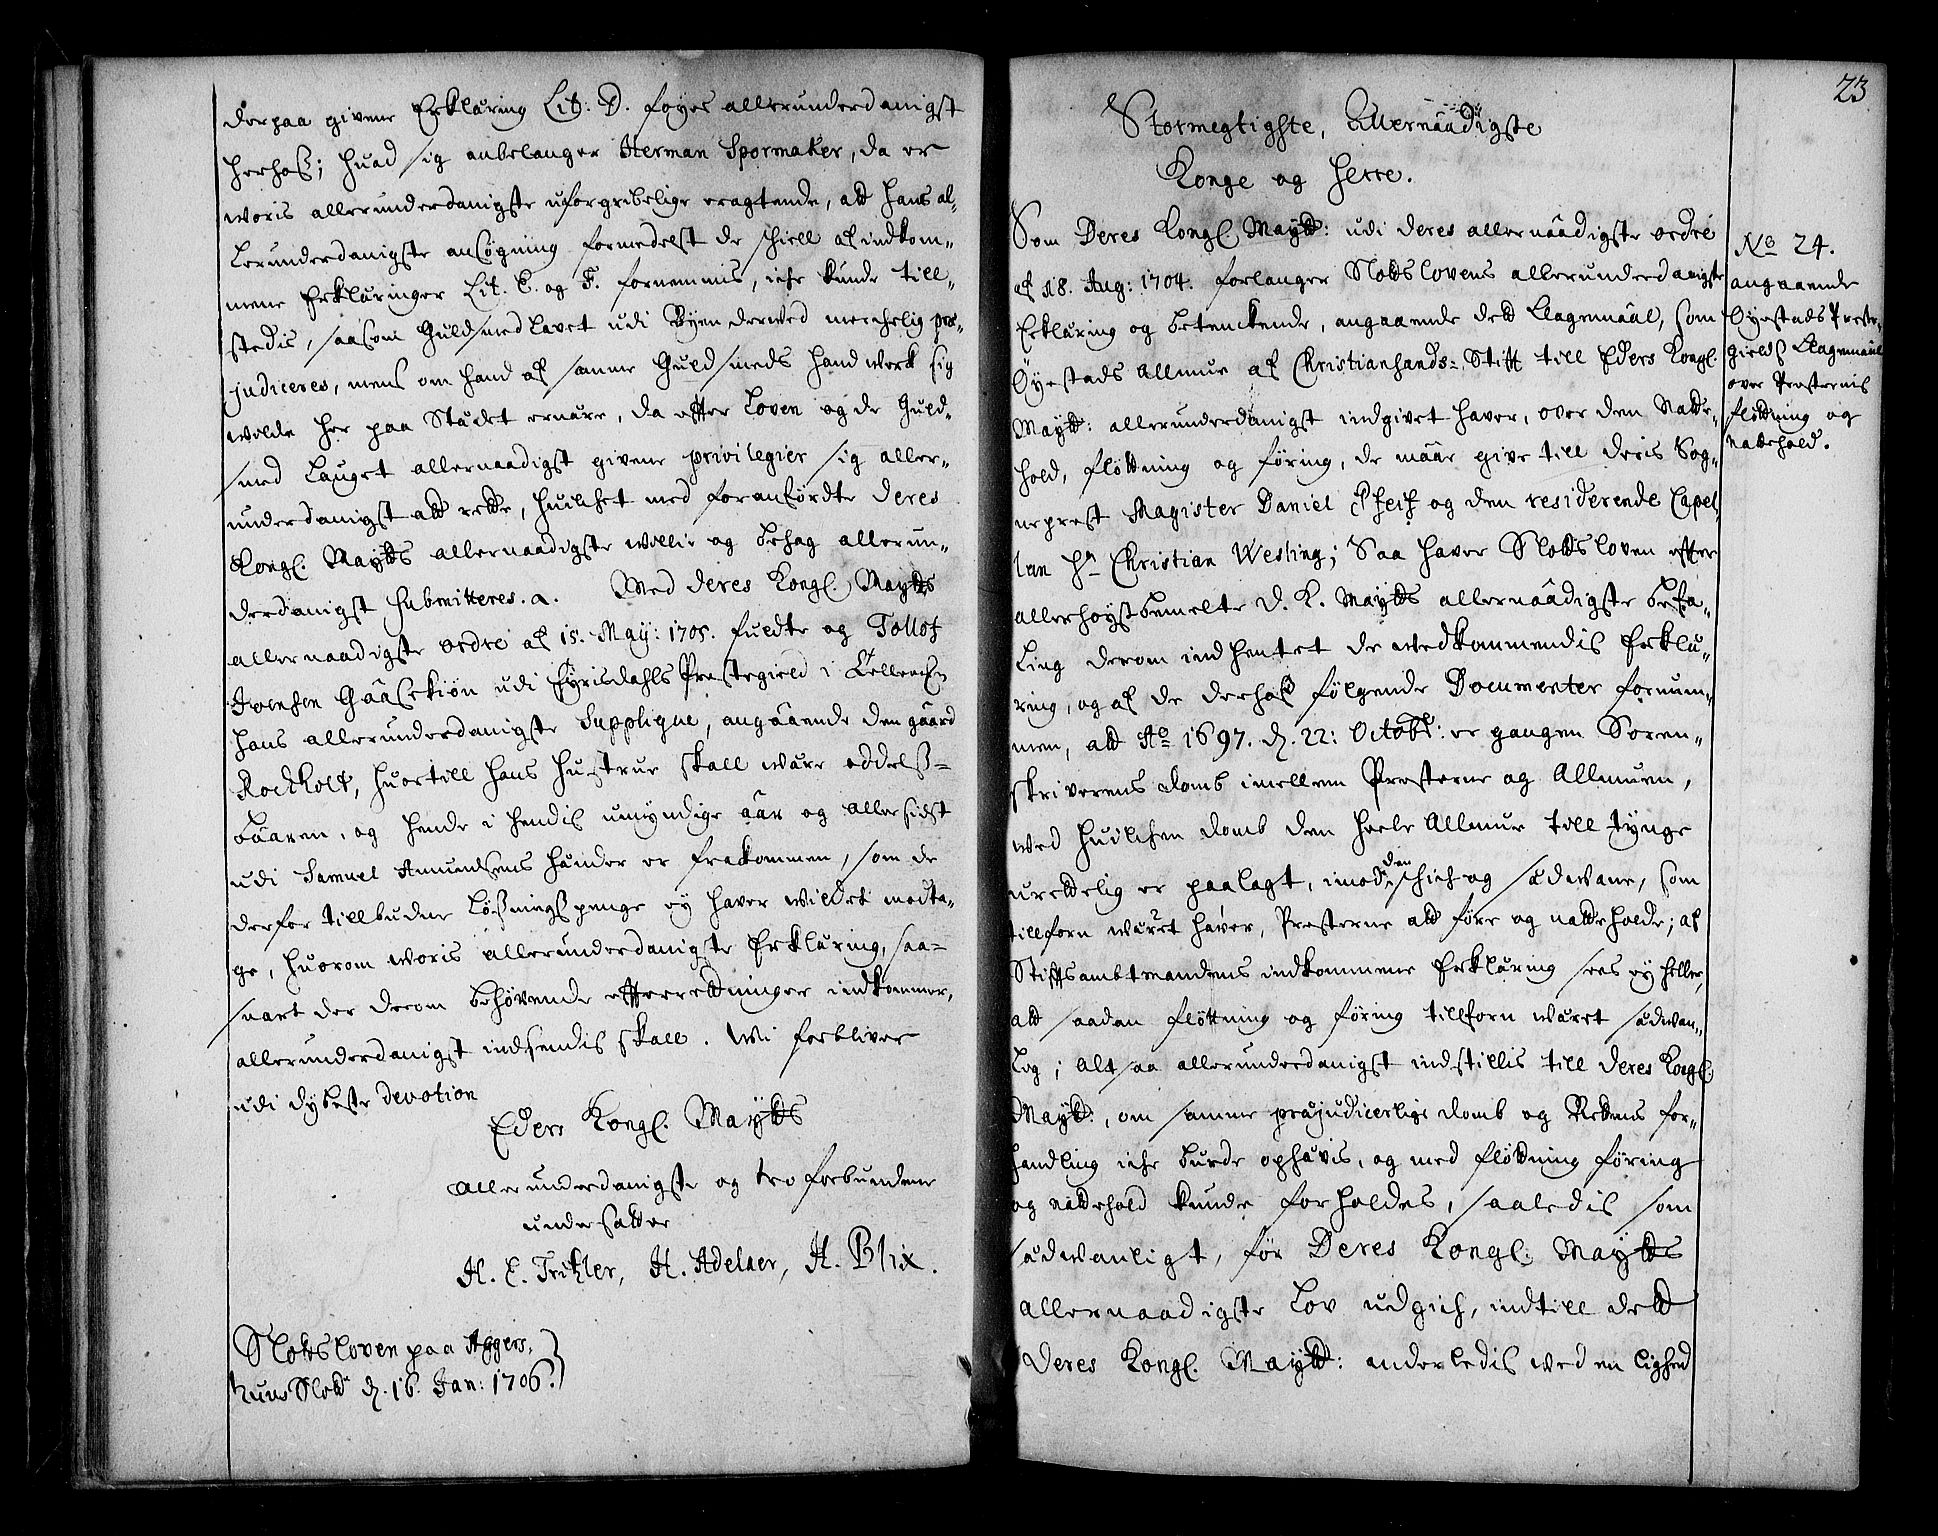 derpaa givene Erklæring Lit: D. føyes allerunderdanigst
herhos; huad sig anbelanger Herman Spormaker, da er
woris allerunderdanigste uforgribelige eragtende, att hans al-
lerunderdanigste ansøgning formedelst de skiell af indkom-
mene Erklæringer Lit. E. og F. fornemmis, iche kunde till-
stedis, saasom Guldsmed Lavet udi Byen derved merchelig præ-
judiceres, mens om hand af samme Guldsmeds handwerk sig
wilde her paa Stædet ernære, da effter Loven og de Guld-
smed Lauget allernaadigst givene privilegier sig aller-
underdanigst att rette, huilchet med foranførdte Deres
Kongl. Maytts allernaadigste willie og behag allerun-
derdanigst submitteres. Med Deres Kongl. Maytts
allernaadigste ordre af 15. May: 1705. fuldte og Tollof
Joensen udi Eyrisdahls Præstegield i
hans allerunderdanigste Supplique, angaaende den gaard
Rockholt, huortill hans hustrue skall være oddels-
baaren, og hende i hendis umyndige aar og allersidst
udi Samuel Amundsens hænder er frakommen, som de
derfor tillbudne Løsningspenge ey haver wildet modta-
ge, huorom woris allerunderdanigste Erklæring, saa-
snart der derom behøvende effterretninger indkommer,
allerunderdanigst indsendis skall. Wi forbliver
udi dybeste devotion
Eders Kongl. Maytts
allerunderdanigste og tro forbundene
undersatter
H. C. Tritzler, H. Adelaer, H. Blix.
Slotsloven paa Aggers-
huus Slott d. 16. Jan: 1706.
23
Stormegtigste, Allernaadigste
Konge og Herre.
Som Deres Kongl Maytt: udi deres allernaadigste ordre
af 18. Aug: 1704. forlanger Slotslovens allerunderdanigste
Erklæring og betenckende, angaaende dett Klagemaal, som
Øyestads Allmue af Christiansands-Stift till Eders Kongl.
Maytt: allerunderdanigst indgivet haver, over den Natte-
hold, fløttning og føring, de maae give till deris Sog-
neprest Magister Daniel Pfeif og den residerende Capel-
lan Hr Christian Wesling; Saa haver Slottsloven effter
allerhøystbemelte D. K. Maytts allernaadigste befa-
ling derom indhentet de wedkommendis Erklæ-
ring, og af de derhos følgende Documenter fornum-
men, att Ao 1697. d. 22: Octobr: er gangen Soren-
skriverens domb imellem Præsterne og Allmuen,
wed huilchen domb den heele Allmue till tynge
urettelig er paalagt, imod den skich og sædwane, som
tillforn wæret haver, Præsterne att føre og natteholde; af
Stiftsambtmandens indkommene Erklæring sees ey heller,
att saadan fløttning og føring tillforn wæret sædwan-
lig; Alt saa allerunderdanigst indstillis till Deres Kongl.
Maytt:, om samme præjudicerlige domb og Rettens for-
handling iche burde ophævis, og med fløttning føring
og nattehold kunde forholdes, saaledis som
sædwanligt, før Deres Kongl. Maytts
Allernaadigste Lov udgich, indtill dett
Deres Kongl. Maytt: anderledis wed en lighed
No 24.
angaaende
Øyestads Præste-
gields Klagemaal
over Præsternis
fløttning og
nattehold.